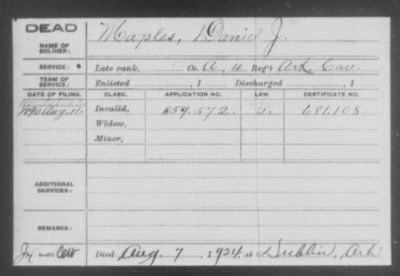 DEAD
NAME OF SOLDIER: Maples, Daniel J.
SERVICE: Late rank, Co. A, 4 Reg't Ark. Cav.
TERM OF SERVICE: Enlisted , 1 Discharged , 1
DATE OF FILING. CLASS. APPLICATION NO. LAW. CERTIFICATE NO.
1890 Aug. 11. Invalid, 859.572 681.108
Widow,
Minor,
ADDITIONAL SERVICES:
REMARKS:
Died Aug. 7, 1924, at Dublin, Ark